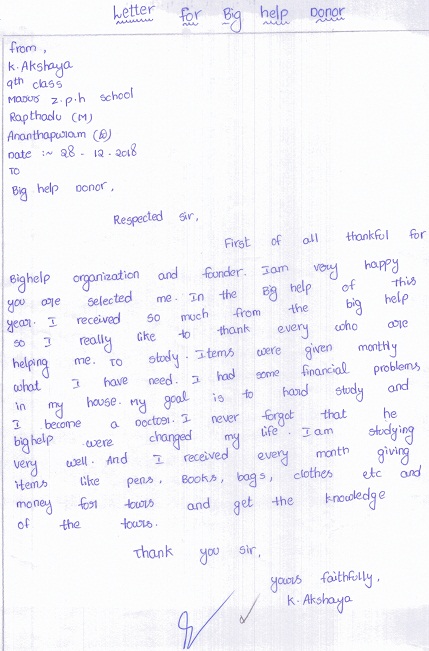 Letter for Big help Donor
from,
K. Akshaya
9th class
Masus z.p.h school
Rapthadu (M)
Ananthapuram (D)
Date :~ 28 - 12 - 2018
To
Big help Donor,
Respected sir,
First of all thankful for
Bighelp organization and founder. I am very happy
you are selected me. In the Big help of this
year. I received so much from the big help
so I really like to thank every who are
helping me. To study. Items were given monthly
what I have need. I had some financial problems
in my house. my goal is to hard study and
I become a Doctor. I never forget that he
bighelp were changed my life. I am studying
very well. And I received every month giving
items like pens, Books, bags, clothes etc and
money for tours and get the knowledge
of the tours.
Thank you sir,
yours faithfully,
K. Akshaya